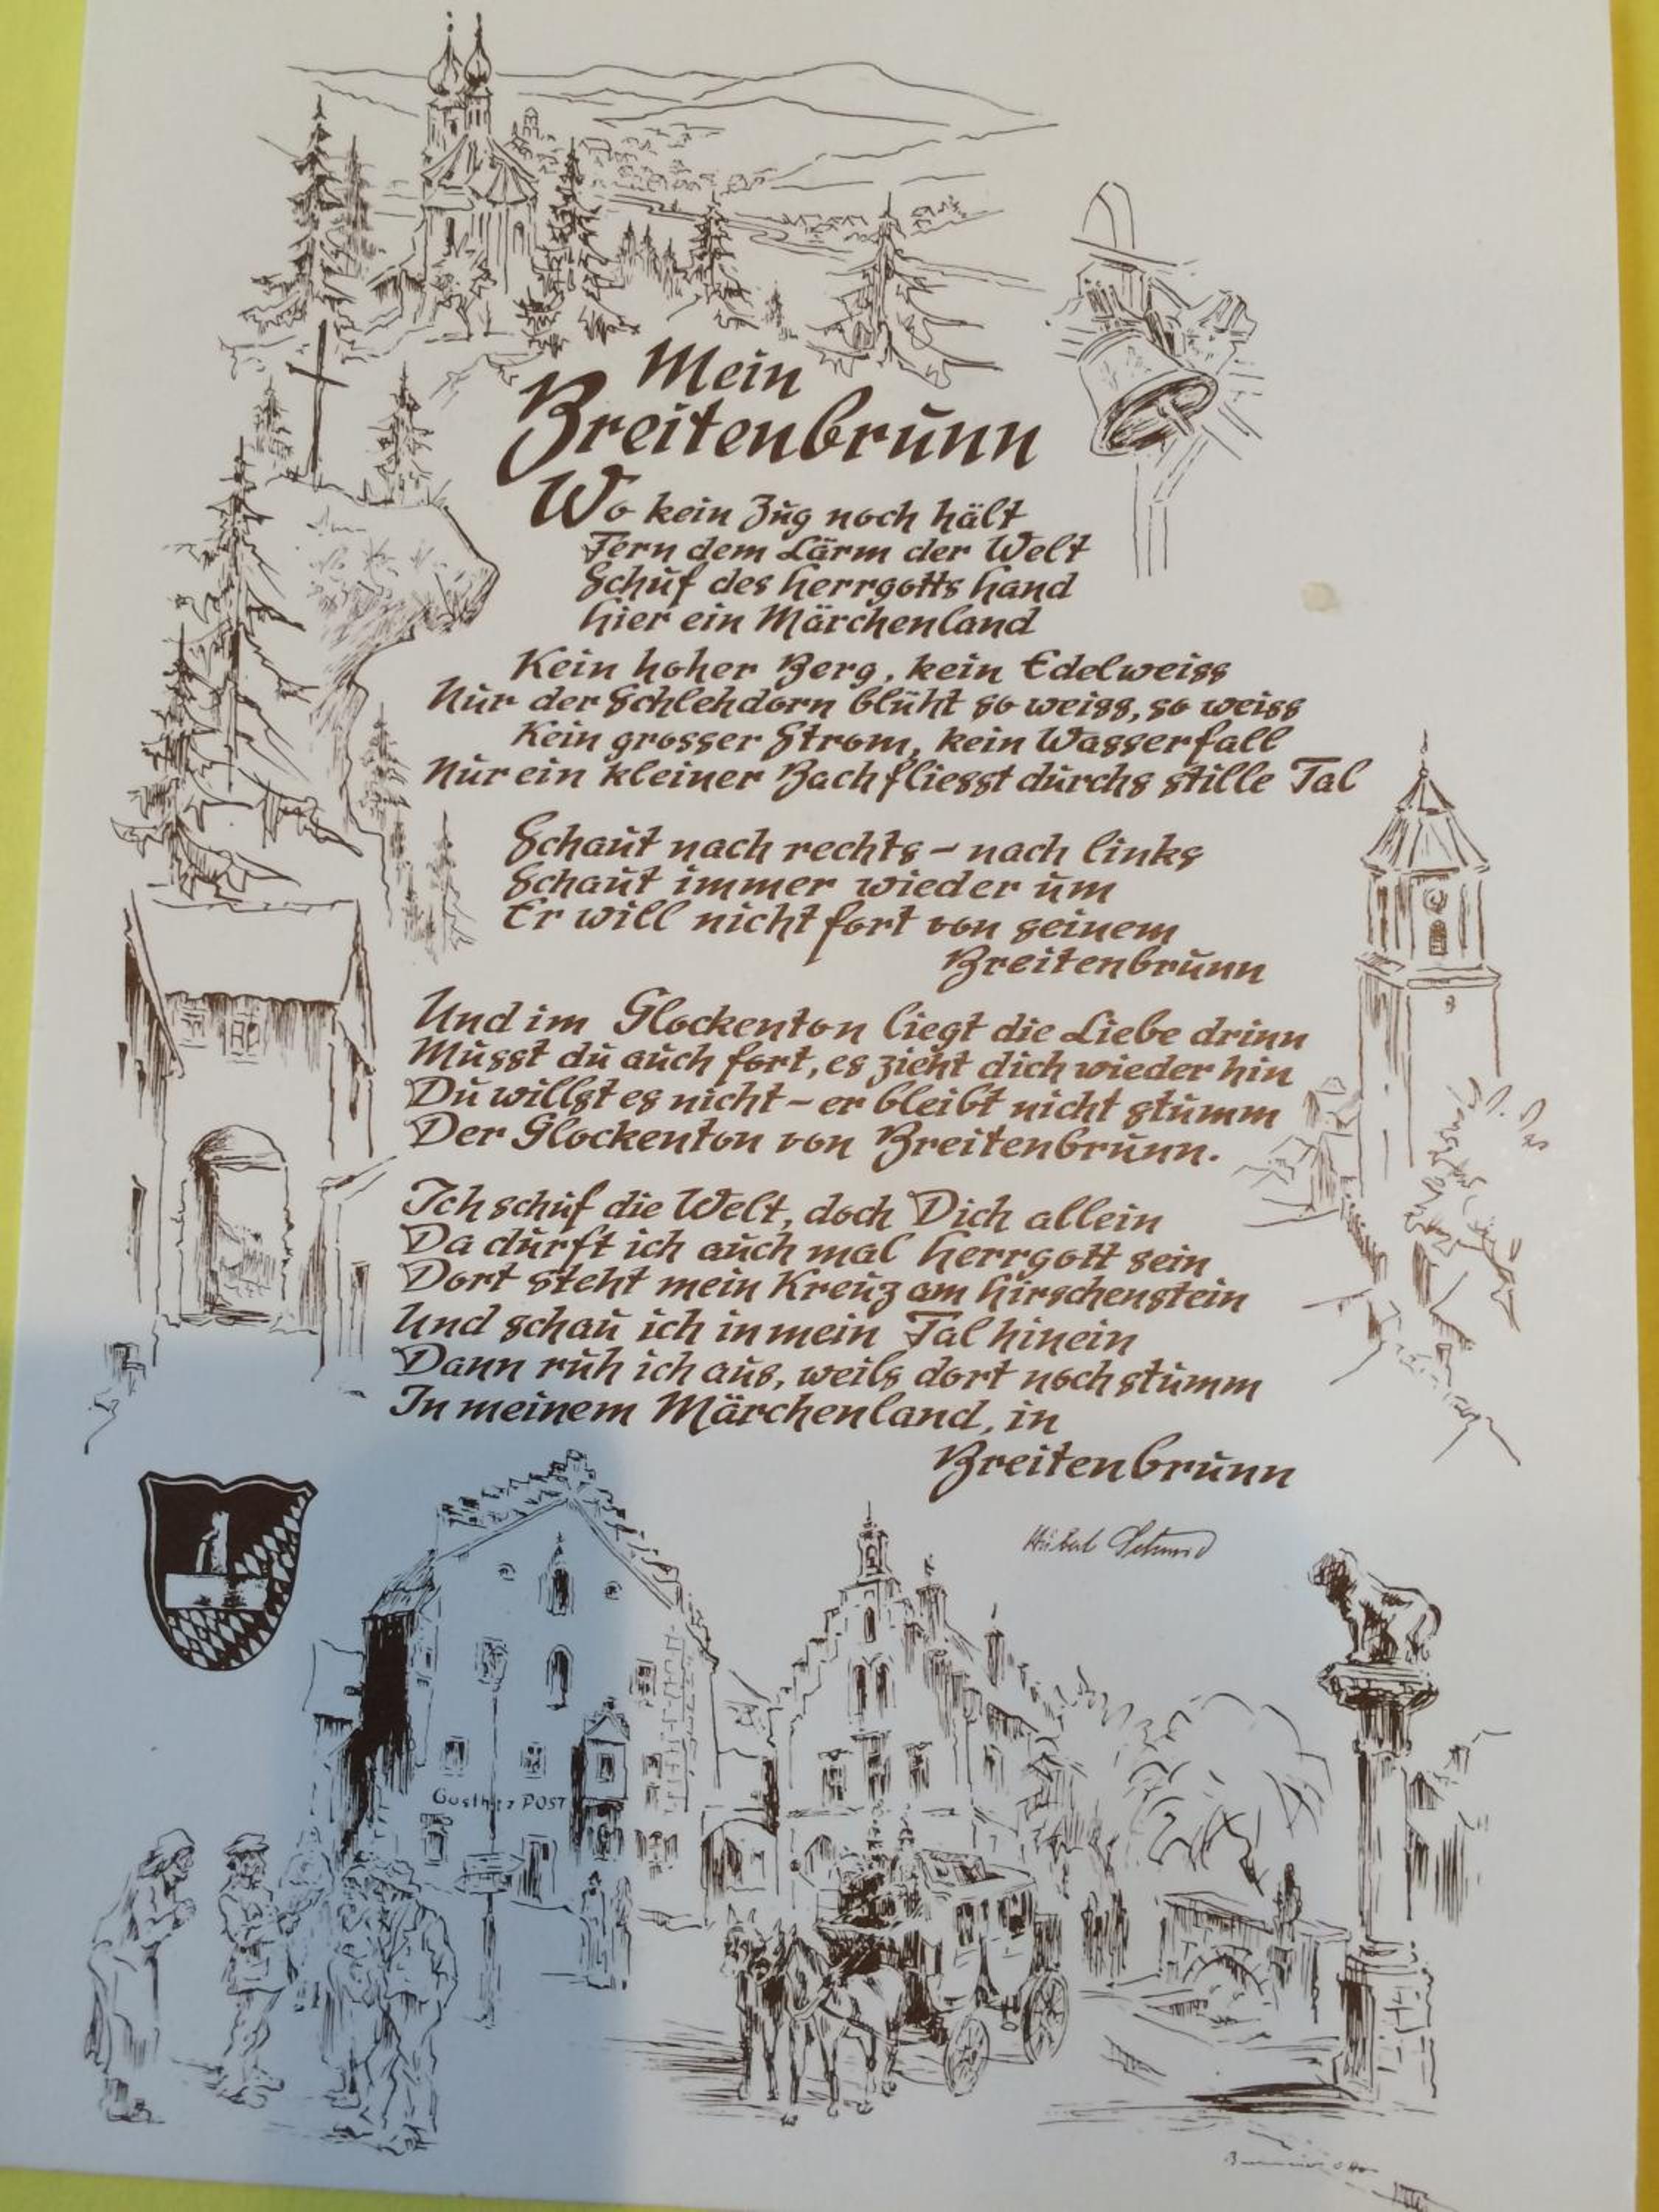 Mein
Breitenbrunn
Wo kein Zug noch hält
Fern dem Lärm der Welt
Schuf des Herrgotts Hand
Hier ein Märchenland
Kein hoher Berg, kein Edelweiss
Nur der Schlehdorn blüht so weiss, so weiss
Kein grosser Strom, kein Wasserfall
Nur ein kleiner Bach fliesst durchs stille Tal
Schaut nach rechts – nach links
Schaut immer wieder um
Er will nicht fort von seinem
Breitenbrunn
Und im Glockenton liegt die Liebe drinn
Musst du auch fort, es zieht dich wieder hin
Du willst es nicht – er bleibt nicht stumm
Der Glockenton von Breitenbrunn.
Ich schuf die Welt, doch Dich allein
Da durft ich auch mal Herrgott sein
Dort steht mein Kreuz am Hirschenstein
Und schau ich in mein Tal hinein
Dann ruh ich aus, weils dort noch stumm
In meinem Märchenland, in
Breitenbrunn
Schmid
POST